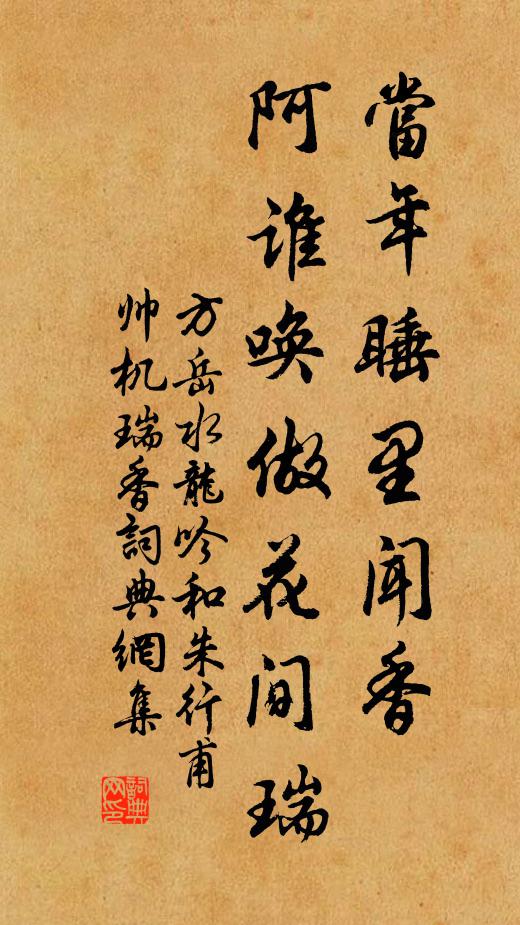 當年睡里闻香
阿谁唤做花间瑞
方岳水龍吟和朱行甫
帅机瑞香詞典網集
詞典网印